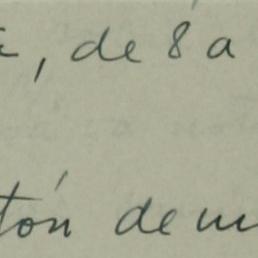 , de 8 a
tón de